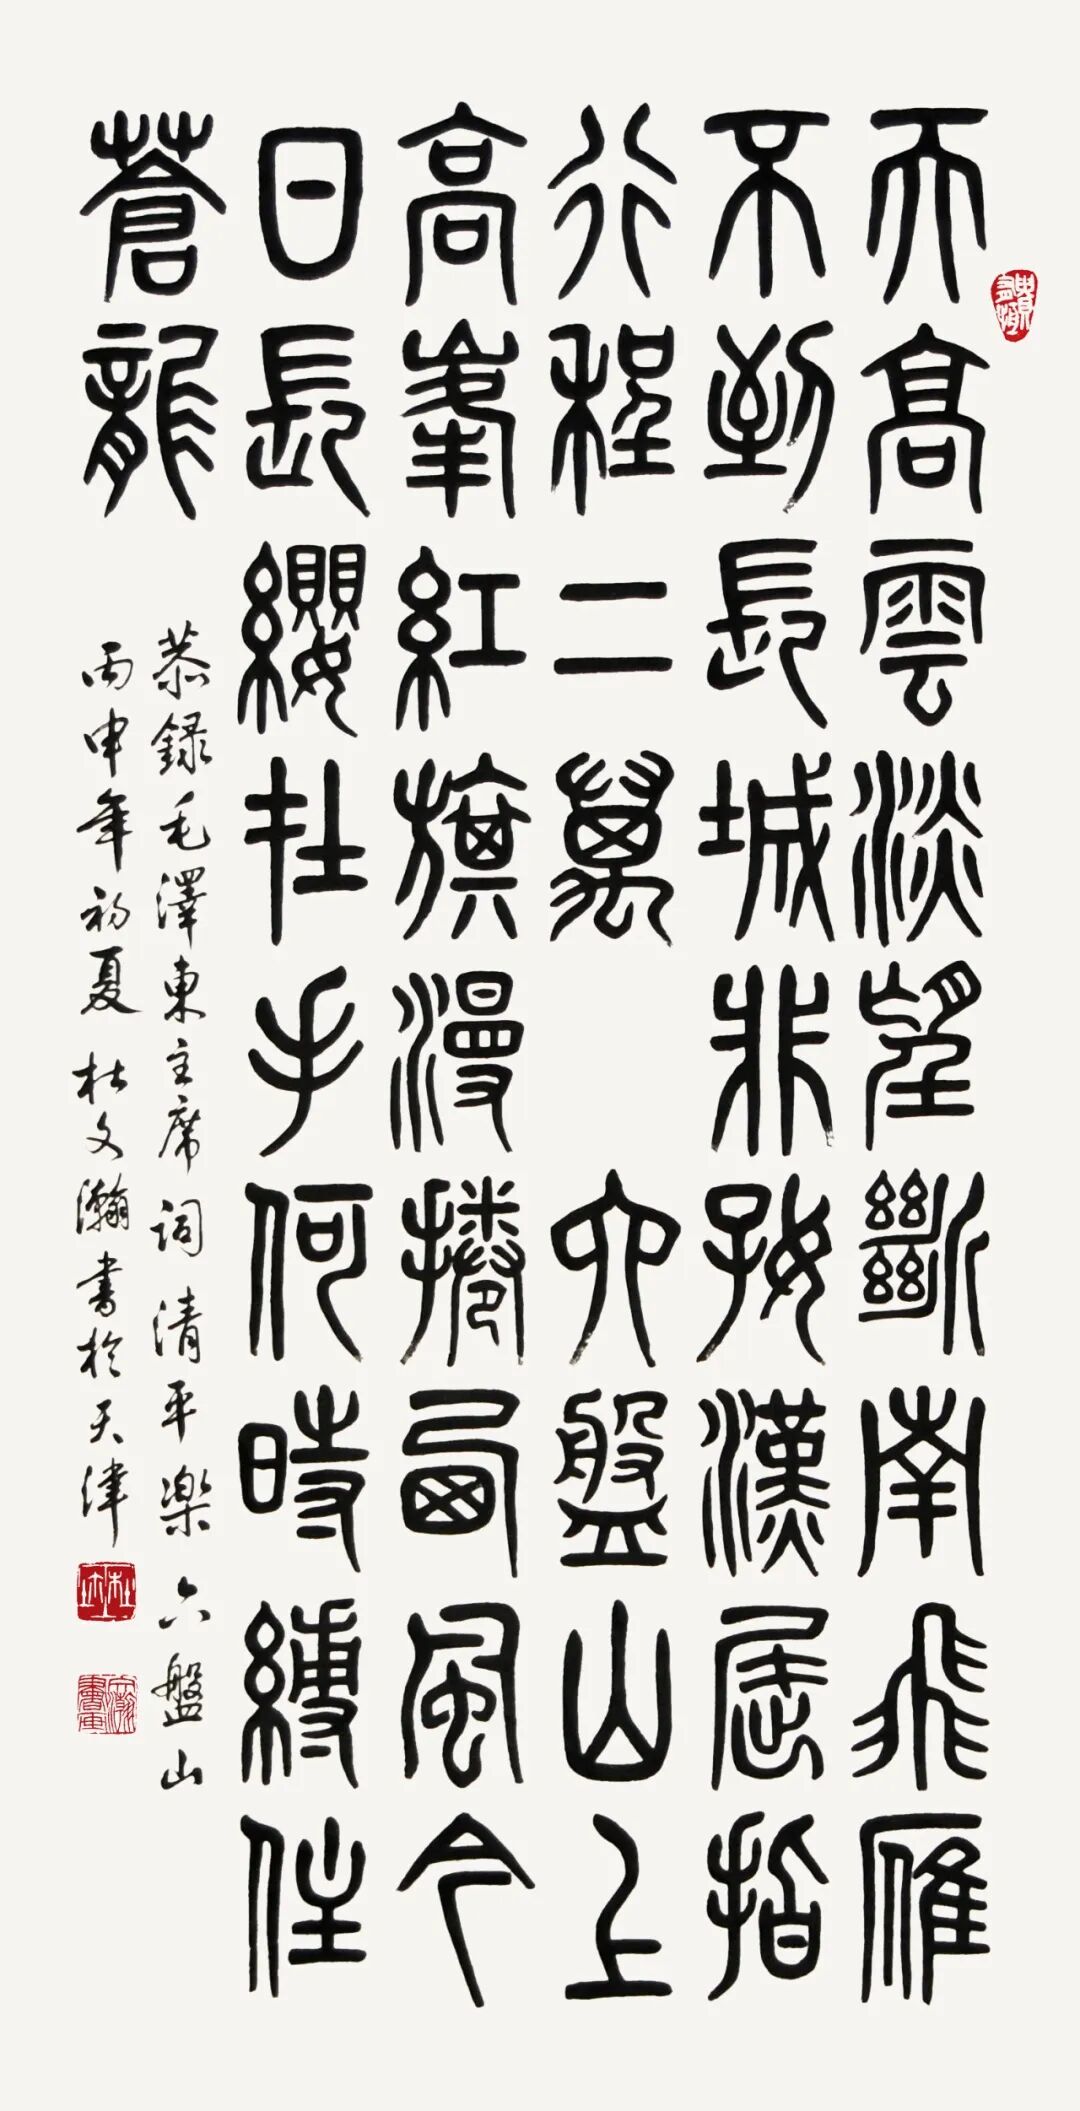 天高雲淡望斷南飛雁
不到長城非好漢屈指
行程二萬　六盤山上
高峯紅旗漫捲西風今
日長纓在手何時縛住
蒼龍
恭録毛澤東主席詞清平樂六盤山
丙申年初夏杜文瀚書於天津